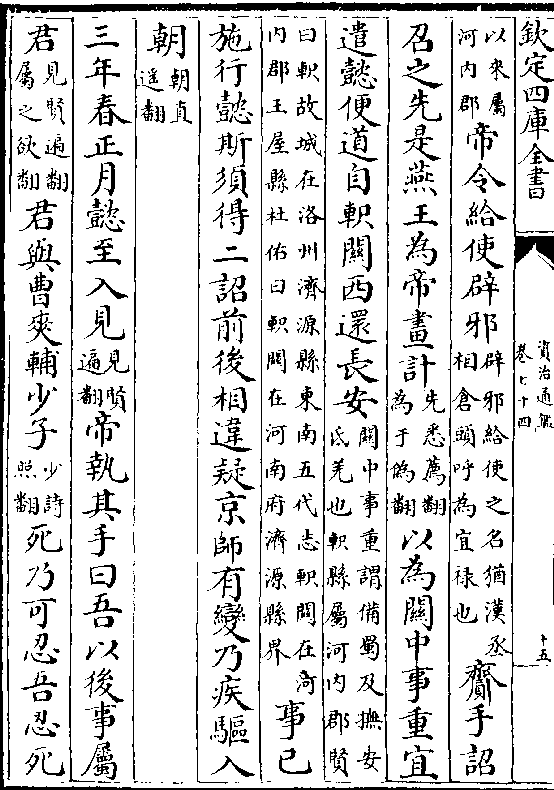 欽定四庫全書
資治通鑑
卷七十四
十五
以來屬
河内郡
帝令給使辟邪
辟邪給使之名猶漢丞
相倉頭呼為宜禄也
齎手詔
召之先是燕王為帝畫計
先悉薦翻
為于偽翻
以為關中事重宜
遣懿便道自軹關西還長安
關中事重謂備蜀及撫安
氐羌也軹縣屬河内郡賢
曰軹故城在洛州濟源縣東南五代志軹關在河
内郡王屋縣杜佑曰軹關在河南府濟源縣界
事已
施行懿斯須得二詔前後相違疑京師有變乃疾驅入
朝
朝直
遥翻
三年春正月懿至入見
見賢
遍翻
帝執其手曰吾以後事屬
君
見賢遍翻
屬之欲翻
君與曹爽輔少子
少詩
照翻
死乃可忍吾忍死